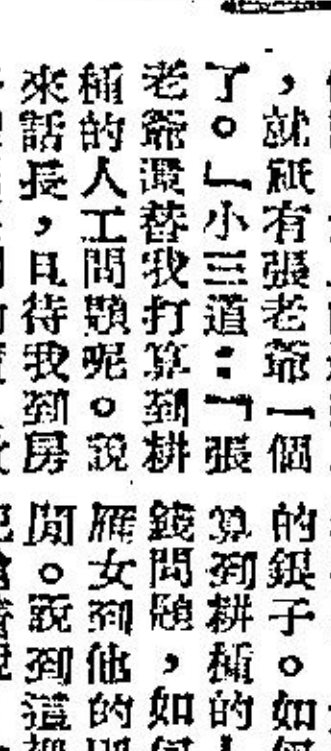 ，就祇有張老爺一個
了。」小三道：「張
老爺還替我打算到耕
種的人工問題呢。說
來話長，且待我到房
的銀子。如
算到耕種的
錢問題，如
雁女到他的
閒。說到這